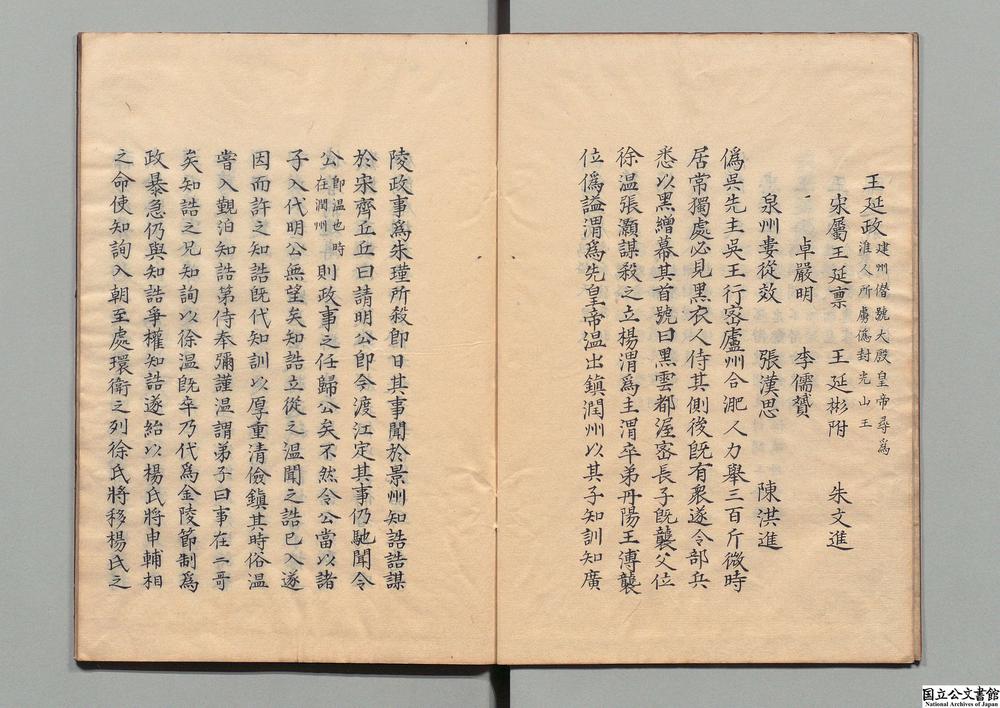 王延政建州僣號大殷皇帝尋爲淮人所虜僞封光山王
宋屬王延禀　王延彬附　朱文進
卓嚴明　李儒贇
泉州婁從效　張漢思　陳洪進
僞吳先主吳王行宻廬州合淝人力舉三百斤微時
居常獨處必見黑衣人侍其側後旣有衆遂令部兵
悉以黑繒幕其首號曰黑雲都渥宻長子旣襲父位
徐温張灝謀殺之立楊渭爲主渭卒弟丹陽王溥襲
位僞謚渭爲先皇帝温出鎭潤州以其子知訓知廣
陵政事爲朱瑾所殺卽日其事聞於景州知誥誥謀
於宋齊丘丘曰請明公卽令渡江定其事仍馳聞令
公卽温也時在潤州則政事之任歸公矣不然令公當以諸
子入代明公無望矣知誥立從之温聞之誥已入遂
因而許之知誥旣代知訓以厚重清儉鎭其時俗温
嘗入覲泊知誥第侍奉彌謹温謂弟子曰事在二哥
矣知誥之兄知詢以徐温旣卒乃代爲金陵節制爲
政暴急仍與知誥爭權知誥遂紿以楊氏將申輔相
之命使知詢入朝至處環衛之列徐氏將移楊氏之
国立公文書館
National Archives of Japan